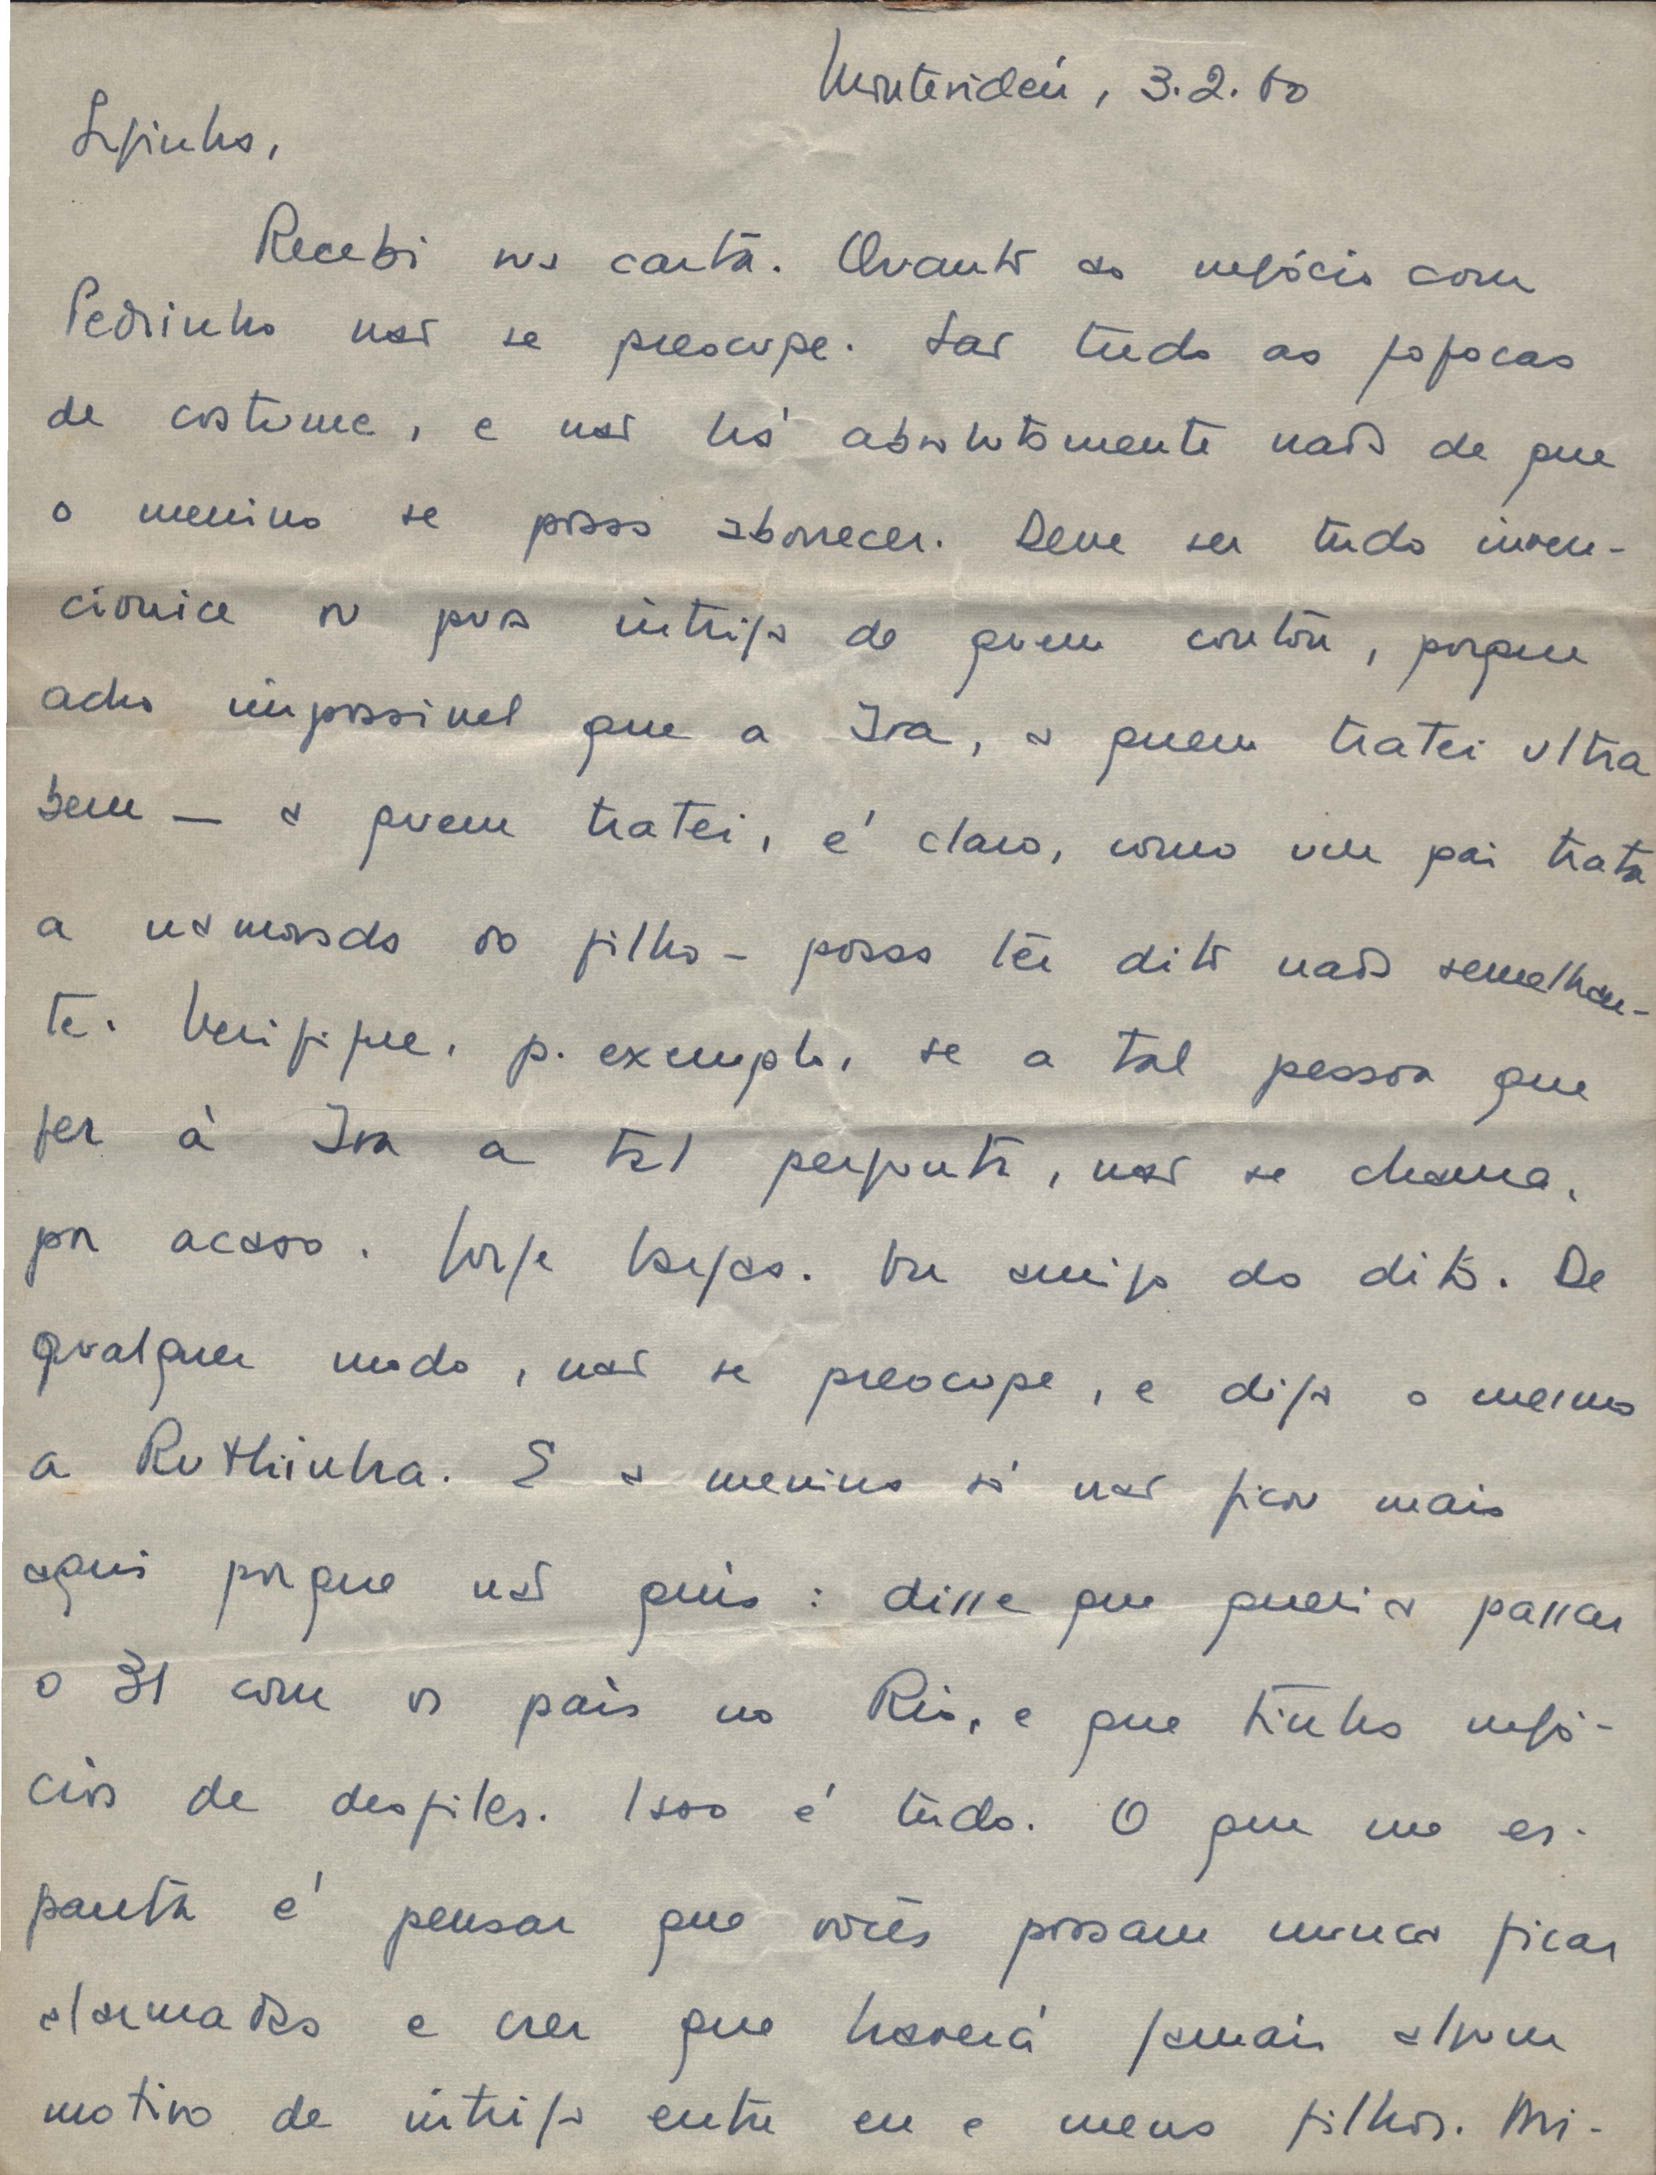 Montevidéu, 3.2.60
Lefinha,
Recebi sua carta. Quanto ao negócio com
Pedrinho não se preocupe. São tudo as fofocas
de costume, e não há absolutamente nada de que
o menino se possa aborrecer. Deve ser tudo inven-
cionice ou pura intriga de quem contou, porque
acho impossivel que a Iva, a quem tratei ultra
bem — a quem tratei, é claro, como um pai trata
a namorada do filho – possa ter dito nada semelhan-
te. Verifique, p. exemplo, se a tal pessoa que
fez à Iva a tal pergunta, não se chama,
por acaso. Jorge. Ou amigo do dito. De
qualquer modo, não se preocupe, e diga o mesmo
a Ruthinha. E o menino só não ficou mais
aqui porque não quis: disse que queria passar
o 31 com os pais no Rio, e que tinha negó-
cios de desfiles. Isso é tudo. O que me es-
panta é pensar que vocês possam nunca ficar
alarmados e crer que haverá jamais algum
motivo de intriga entre eu e meus filhos. Mi-